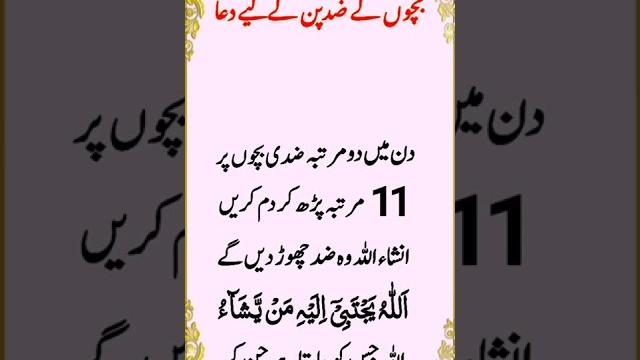 بچوں کے ضد پن کے لیے دعا
دن میں دو مرتبہ ضدی بچوں پر
11 مرتبہ پڑھ کر دم کریں
انشاء اللہ وہ ضد چھوڑ دیں گے
اَللّٰہُ یَجْتَبِیْۤ اِلَیْہِ مَنْ یَّشَآءُ